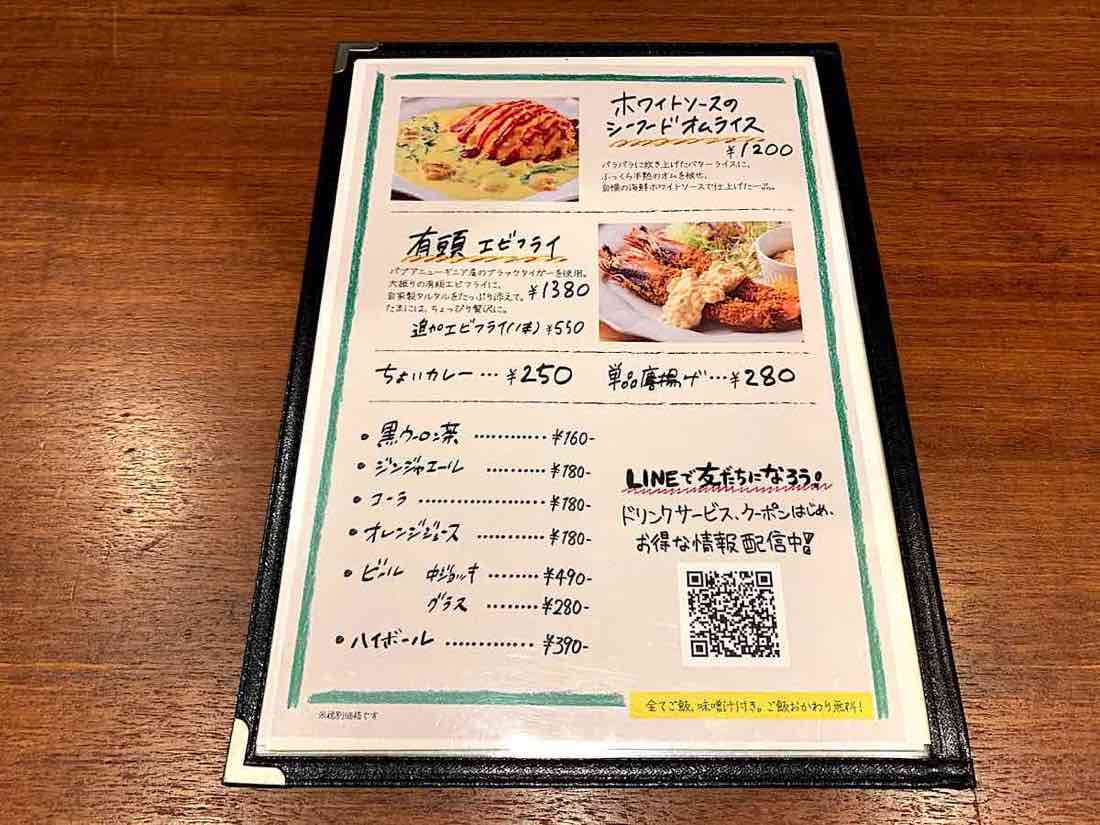 ホワイトソースの
シーフードオムライス
¥1200
パラパラに炊き上げたバターライスに、
ふっくら半熟のオムを被せ、
自慢の海鮮ホワイトソースで仕上げた一品。
有頭 エビフライ
パプアニューギニア産のブラックタイガーを使用。
大振りの有頭エビフライに、
自家製タルタルをたっぷり添えて。
たまには、ちょっぴり贅沢に。
¥1380
追加エビフライ(1本) ¥550
ちょいカレー… ¥250
単品唐揚げ…¥280
• 黒ウーロン茶 ………… ¥160-
• ジンジャエール ……… ¥180-
• コーラ ……………… ¥180-
• オレンジジュース ……… ¥180-
• ビール 中ジョッキ ……… ¥490-
グラス ……… ¥280-
• ハイボール ………… ¥390-
LINEで友だちになろう!
ドリンクサービス、クーポンはじめ、
お得な情報配信中!!
※税別価格です
全てご飯、味噌汁付き。ご飯おかわり無料!